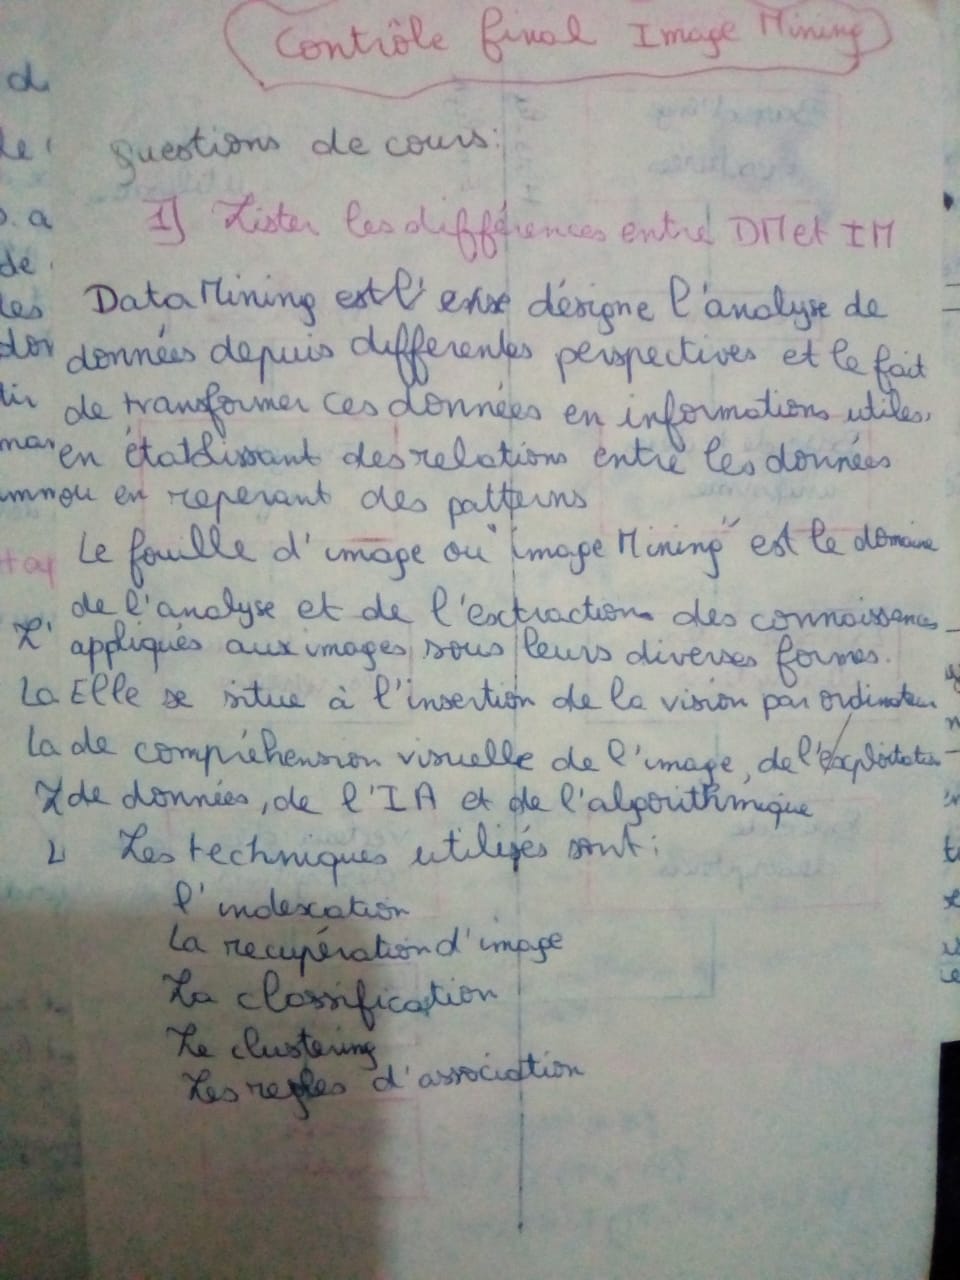 Contrôle final Image Mining
Questions de cours:
1) Lister les différences entre DM et IM
Data Mining est l' désigne l'analyse de
données depuis differentes perspectives et le fait
de transformer ces données en informations utiles,
en établissant des relations entre les données
ou en reperant des patterns
Le fouille d'image ou "image Mining" est le domaine
de l'analyse et de l'extraction des connaissances
appliqués aux images sous leurs diverses formes.
Elle se situe à l'insertion de la vision par ordinateur
de compréhension visuelle de l'image, de l'exploitation
de données, de l'IA et de l'algorithmique
Les techniques utilisés sont:
l'indexation
La recupération d'image
La classification
Le clustering
Les regles d'association